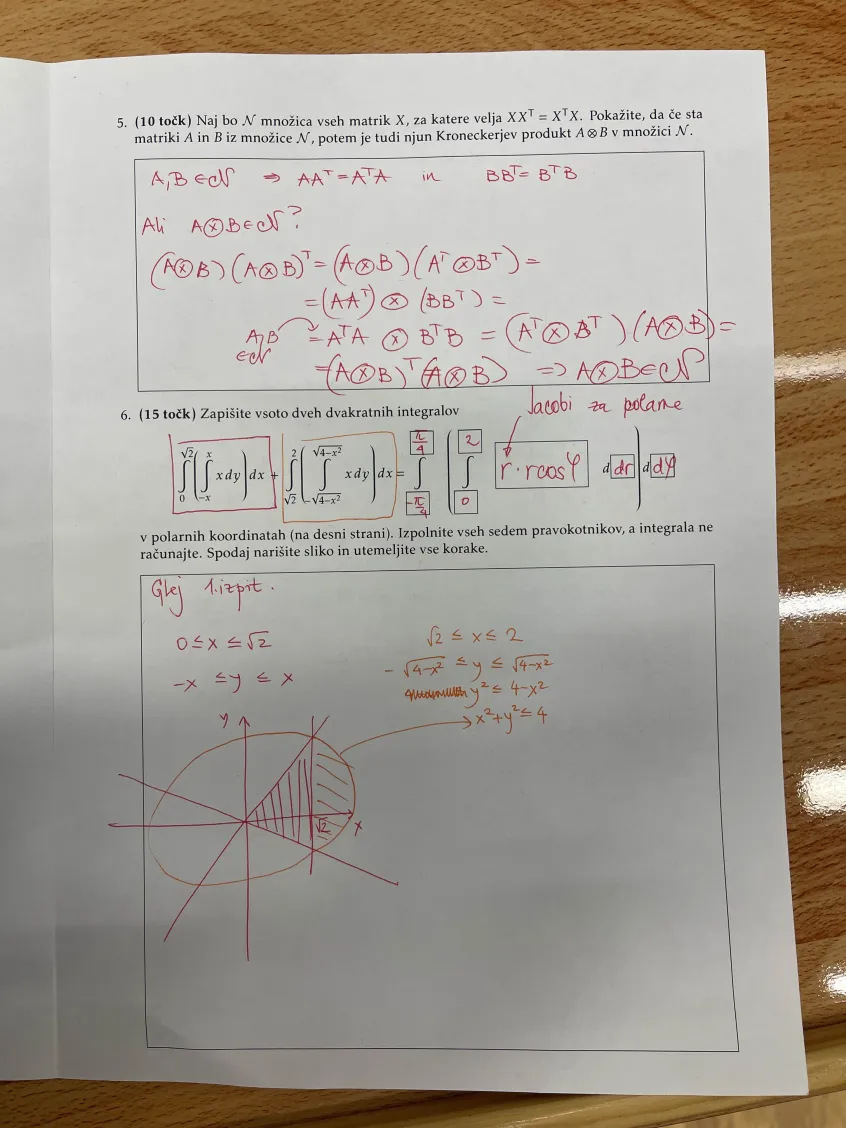 5. (10 točk) Naj bo 𝒩 množica vseh matrik X, za katere velja XXᵀ = XᵀX. Pokažite, da če sta
matriki A in B iz množice 𝒩, potem je tudi njun Kroneckerjev produkt A ⊗ B v množici 𝒩.
A, B ∈ 𝒩 ⇒ AAᵀ = AᵀA in BBᵀ = BᵀB
Ali A ⊗ B ∈ 𝒩?
(A ⊗ B)(A ⊗ B)ᵀ = (A ⊗ B)(Aᵀ ⊗ Bᵀ) =
= (AAᵀ) ⊗ (BBᵀ) =
A, B ∈ 𝒩 = AᵀA ⊗ BᵀB = (Aᵀ ⊗ Bᵀ)(A ⊗ B) =
= (A ⊗ B)ᵀ(A ⊗ B) ⇒ A ⊗ B ∈ 𝒩
6. (15 točk) Zapišite vsoto dveh dvakratnih integralov
Jacobi za polarne
∫₀^√2 (∫₋ₓ^x x dy) dx + ∫_√2^2 (∫_{-√(4-x²)}^{√(4-x²)} x dy) dx = ∫_{-π/4}^{π/4} (∫₀^2 r · r cos φ d dr) d dφ
v polarnih koordinatah (na desni strani). Izpolnite vseh sedem pravokotnikov, a integrala ne
računajte. Spodaj narišite sliko in utemeljite vse korake.
Glej 1. izpit.
0 ≤ x ≤ √2
-x ≤ y ≤ x
√2 ≤ x ≤ 2
-√(4-x²) ≤ y ≤ √(4-x²)
y² ≤ 4-x²
x²+y² ≤ 4
y
√2
x